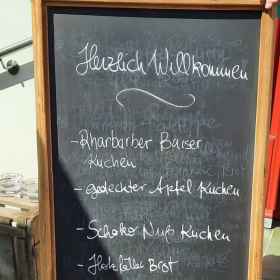 Herzlich Willkommen
- Rharbarber Baiser
Kuchen
- gedeckter Apfel Kuchen
- Schoko Nuß Kuchen
- Brot